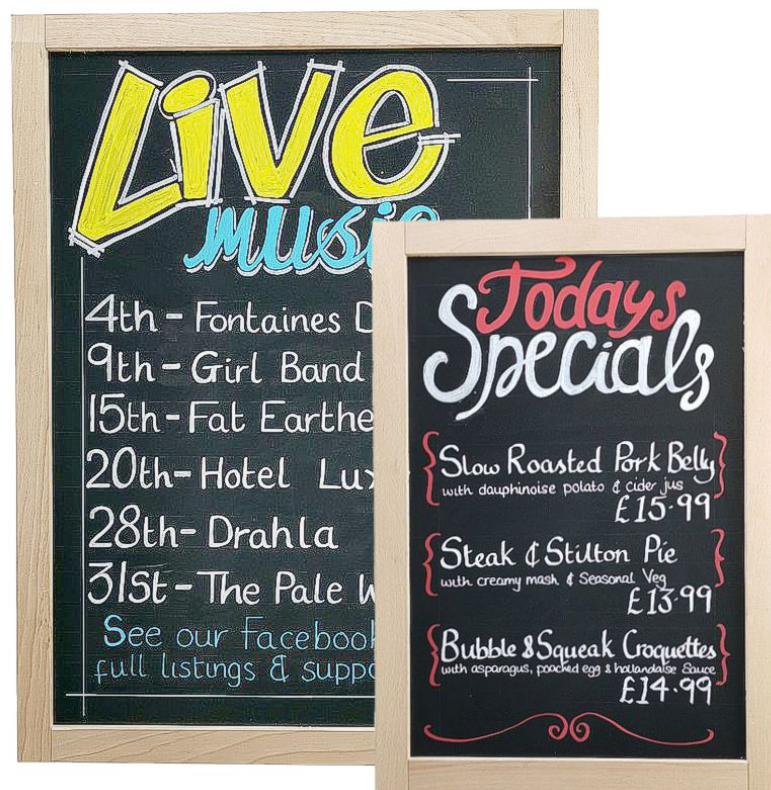 Live
music
4th - Fontaines D
9th - Girl Band
15th - Fat Earthe
20th - Hotel Lux
28th - Drahla
31st - The Pale W
See our Facebook
full listings & suppo
Todays
Specials
Slow Roasted Pork Belly
with dauphinoise potato & cider jus
£15.99
Steak & Stilton Pie
with creamy mash & Seasonal Veg
£13.99
Bubble & Squeak Croquettes
with asparagus, poached egg & hollandaise Sauce
£14.99